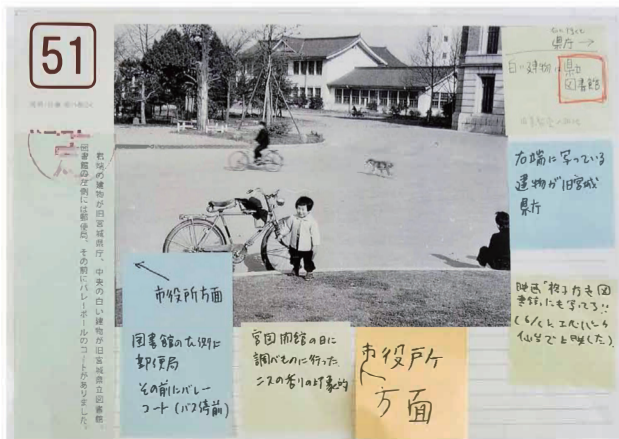 51
右端の建物が旧宮城県庁、中央の白い建物が旧宮城県立図書館。
図書館の左側には郵便局、その前にバレーボールのコートがありました。
県庁→
白い建物は県立
図書館
右端に写っている
建物が旧宮城
県庁
市役所方面
図書館の左側に
郵便局
その前にバレー
コート(バス停前)
宮図開館の日に
調べものに行った
ニスの香りが印象的
市役所
方面
映画「格子なき図
書館」にも写ってる!!
仙台で上映した)